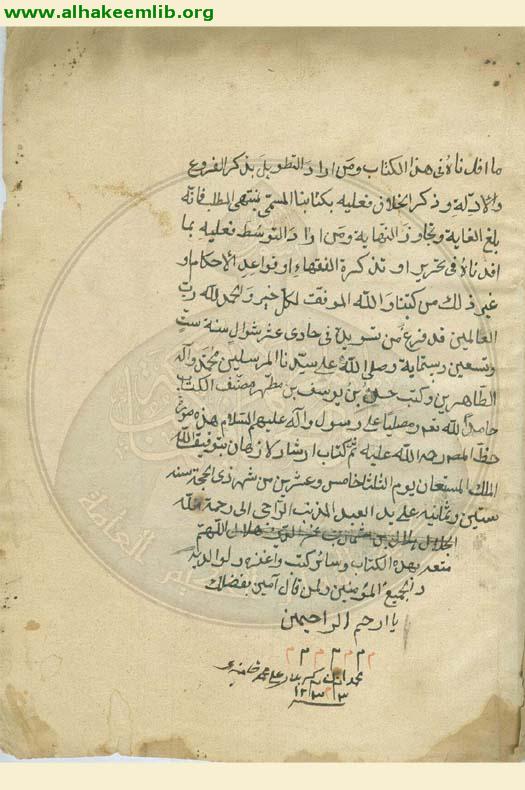 www.alhakeemlib.org
ما افدناه فى هذا الكتاب ومن اراد التطويل بذكر الفروع
والادلة وذكر الخلاف فعليه بكتابنا المسمى بمنتهى المطلب فانه
بلغ الغاية وتجاوز النهاية ومن اراد التوسط فعليه بما
افدناه فى تحرير او تذكرة الفقهاء او قواعد الاحكام و
غير ذلك من كتبنا والله الموفق لكل خير والحمد لله رب
العالمين قد فرغ من تسويده فى حادى عشر شوال سنة ست
وتسعين وستماية وصلى الله على سيدنا المرسلين محمد وآله
الطاهرين وكتب حسن بن يوسف بن مطهر مصنف الكتاب
حامدا لله تعم ومصليا على رسوله وآله عليهم السلام هذه صورة
خط المص رحمه الله عليه تم كتاب ارشاد الاذهان بتوفيق الله
الملك المستعان يوم الثلثا خامس وعشرين من شهر ذى الحجة سنه
ستين وثمانيه على يد العبد المذنب الراجى الى رحمة الله
هلال اللهم
متعه بهذه الكتاب وسائر كتبه واغفر له ولوالديه
ولجميع المؤمنين ولمن قال آمين بفضلك
يا ارحم الراحمين
م م م م م م